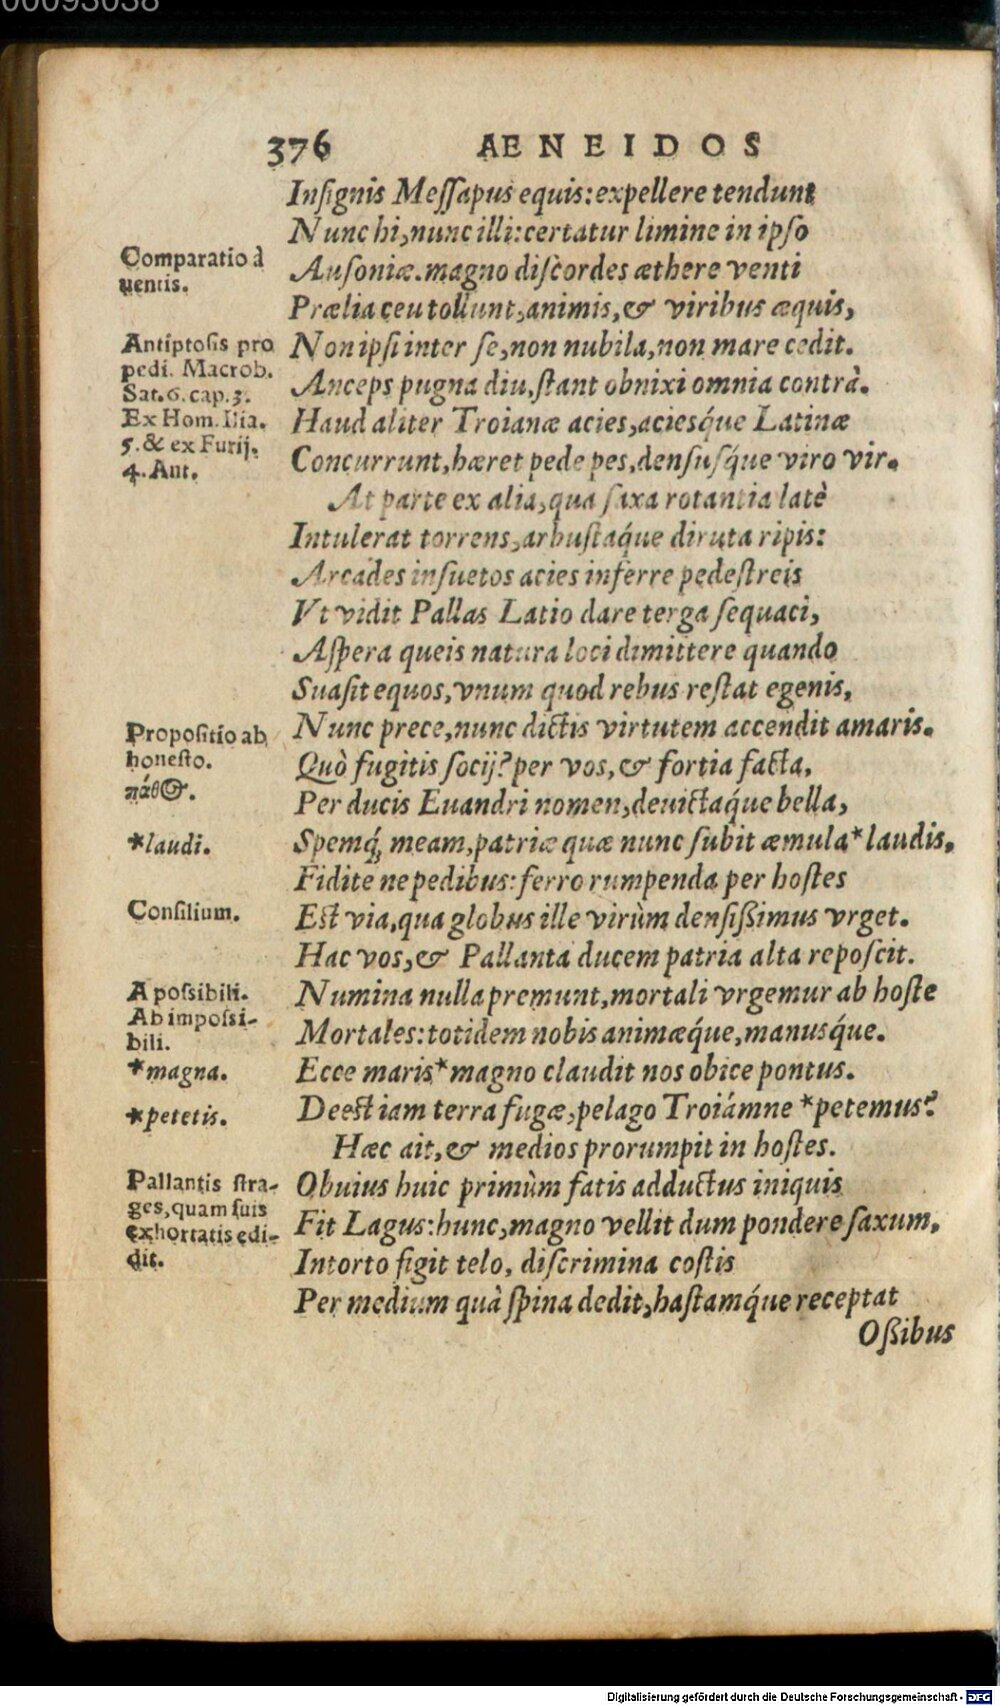 00093038
376 AENEIDOS
Inſignis Meſſapus equis: expellere tendunt
Nunc hi, nunc illi: certatur limine in ipſo
Comparatio à
uentis.
Auſoniæ. magno diſcordes æthere venti
Prælia ceu tollunt, animis, & viribus æquis,
Antiptoſis pro
pedi. Macrob.
Sat. 6. cap. 3.
Ex Hom. Ilia.
5. & ex Furij.
4. Ant.
Non ipſi inter ſe, non nubila, non mare cedit.
Anceps pugna diu, ſtant obnixi omnia contrà.
Haud aliter Troianæ acies, aciesq́ue Latinæ
Concurrunt, hæret pede pes, denſusq́ue viro vir.
At parte ex alia, qua ſaxa rotantia latè
Intulerat torrens, arbuſtaq́ue diruta ripis:
Arcades inſuetos acies inferre pedeſtreis
Vt vidit Pallas Latio dare terga ſequaci,
Aſpera queis natura loci dimittere quando
Suaſit equos, vnum quod rebus reſtat egenis,
Propoſitio ab
honeſto.
πάθος.
Nunc prece, nunc dictis virtutem accendit amaris.
Quò fugitis ſocij? per vos, & fortia facta,
Per ducis Euandri nomen, deuictaq́ue bella,
*laudi.
Spemq́; meam, patriæ quæ nunc ſubit æmula *laudis,
Fidite ne pedibus: ferro rumpenda per hoſtes
Conſilium.
Eſt via, qua globus ille virùm denſißimus vrget.
Hac vos, & Pallanta ducem patria alta repoſcit.
A poſsibili.
Ab impoſsi-
bili.
Numina nulla premunt, mortali vrgemur ab hoſte
Mortales: totidem nobis animæq́ue, manusq́ue.
*magna.
Ecce maris *magno claudit nos obice pontus.
*petetis.
Deeſt iam terra fugæ, pelago Troiámne *petemus?
Hæc ait, & medios prorumpit in hoſtes.
Pallantis ſtra-
ges, quam ſuis
exhortatis edi-
dit.
Obuius huic primùm fatis adductus iniquis
Fit Lagus: hunc, magno vellit dum pondere ſaxum,
Intorto figit telo, diſcrimina coſtis
Per medium quà ſpina dedit, haſtamq́ue receptat
Oßibus
Digitalisierung gefördert durch die Deutsche Forschungsgemeinschaft - DFG